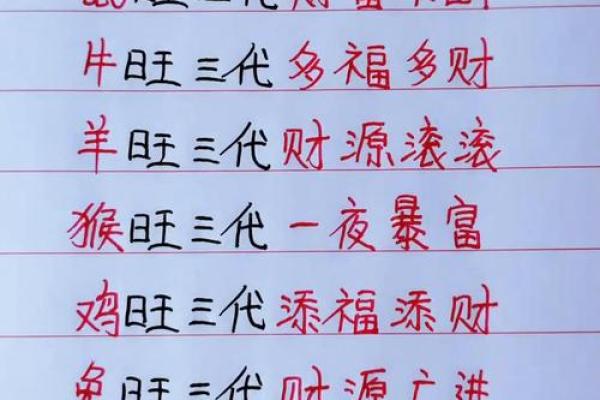 旺三代财富
牛旺三代多福多财
羊旺三代财源滚滚
猴旺三代一夜暴富
鸡旺三代添福添财
兔旺三代财源广进